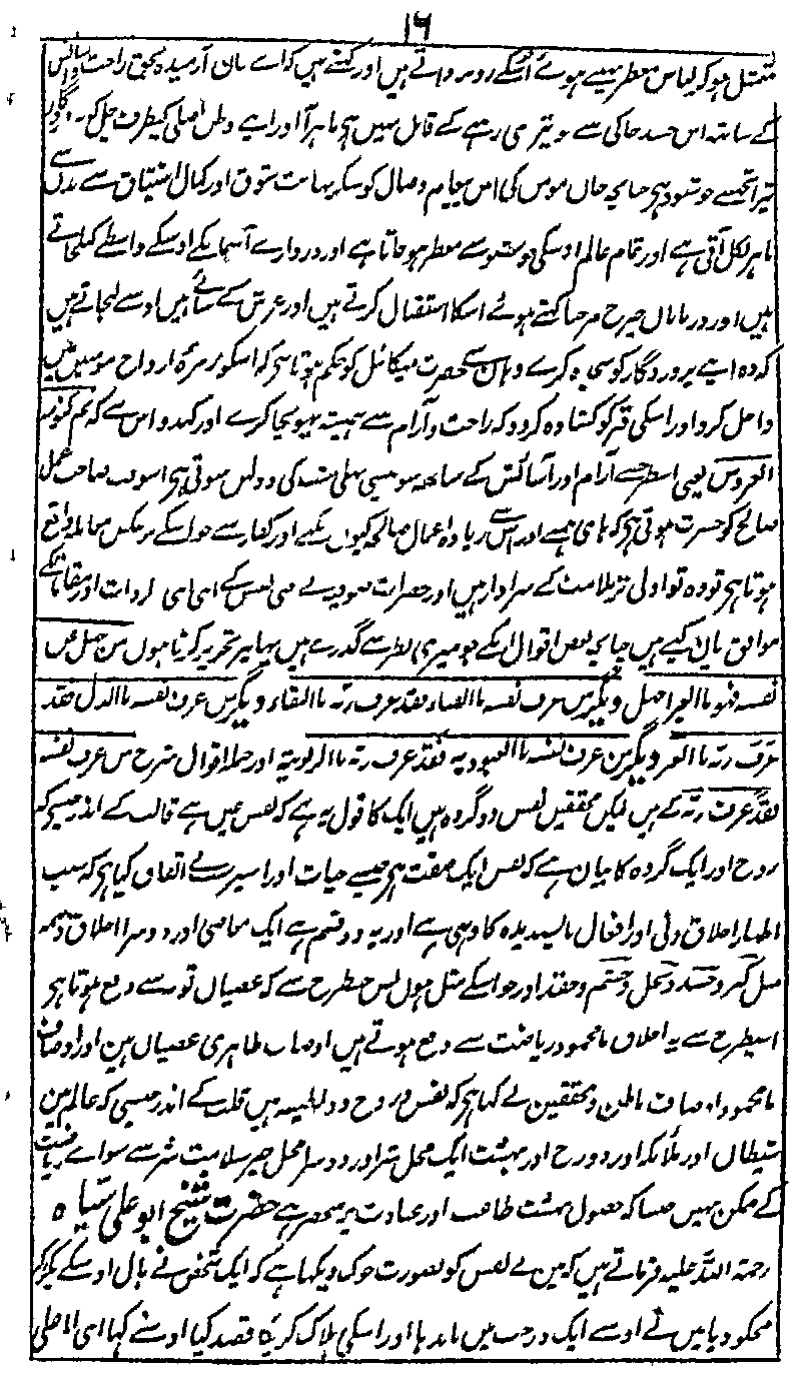 ۱۶
متمثل ہو کر لباس معطر پہنے ہوئے اُسکے روبرو آتے ہیں اور کہتے ہیں کہ اے جان آرمیدہ بحق راحت و آسائش
کے ساتھ اس جسد خاکی سے جو تیری رہنے کے قابل نہیں ہے باہر آ اور اپنے وطن اصلی کیطرف چل کہ
تیرا تجھسے خوشنود ہے چنانچہ جان مومن کی اس پیام وصال کو سنکر نہایت شوق اور کمال اشتیاق سے بدن سے
باہر نکل آتی ہے اور تمام عالم اوسکی خوشبو سے معطر ہو جاتا ہے اور دروازے آسمانکے اوسکے واسطے کھلجاتے
ہیں اور دربانان چرخ مرحبا کہتے ہوئے اسکا استقبال کرتے ہیں اور عرش کے سائے میں اوسے لیجاتے ہیں
کہ وہ اپنے پروردگار کو سجدہ کرے وہاں سے حضرت میکائل کو حکم ہوتا ہے کہ اسکو زمرۂ ارواح مومنین میں
داخل کرو اور اسکی قبر کو کشادہ کرو کہ راحت و آرام سے ہمیشہ رہا کرے اور کہدو اس سے کہ نم کنومۃ
العروس یعنی اسطرحسے آرام اور آسائش کے ساتھ سو جیسی پہلی شب کی دولہن سوتی ہے اسوقت صاحب عمل
صالح کو حسرت ہوتی ہے کہ ہای ہمنے اور اس سے زیادہ اعمال صالحہ کیوں نکئے اور کفار سے جو اسکے برعکس معاملہ واقع
ہوتا ہے تو وہ تو اولی تر ملامت کے سزاوار ہیں اور حضرات صوفیہ نے معنی نفس کے اپنی اپنی واردات اور مقامات کے
موافق بیان کیے ہیں چنانچہ بعض اقوال انکے جو میری نظر سے گذرے ہیں یہانپر تحریر کرتا ہوں من جہل عن
نفسہ فہو بالغیر اجہل دیگر من عرف نفسہ بالفناء فقد عرف ربہ بالبقاء دیگر من عرف نفسہ بالذل فقد
عرف ربہ بالعز دیگر من عرف نفسہ بالعبودیہ فقد عرف ربہ بالربوبیۃ اور جملہ اقوال شرح من عرف نفسہ
فقد عرف ربہ کے ہیں لیکن محققین نفس دو گروہ ہیں ایک کا قول یہ ہے کہ نفس عین ہے قالب کے اندر جیسے کہ
روح اور ایک گروہ کا بیان ہے کہ نفس ایک صفت ہے جیسے حیات اور اسپر سبنے اتفاق کیا ہے کہ سبب
اظہار اخلاق دنی اور افعال ناپسندیدہ کا وہی ہے اور یہ دو قسم ہے ایک معاصی اور دوسرا اخلاق ذمیمہ
مثل کبر و حسد و بخل و خشم و حقد اور جو اسکے مثل ہوں پس جسطرح سے کہ عصیان توبہ سے دفع ہوتا ہے
اسیطرح سے یہ اخلاق نامحمود ریاضت سے دفع ہوتے ہیں اوصاف ظاہری عصیان ہیں اور اوصاف
نامحمود اوصاف باطن و محققین نے کہا ہے کہ نفس و روح دو لطیفہ ہیں قلب کے اندر جیسی کہ عالم میں
شیطان اور ملائکہ اور دوزخ اور بہشت ایک محل شر اور دوسرا محل خیر سلامت شر سے سوائے ریاضت
کے ممکن نہیں جیسا کہ حصول بہشت طاعت اور عبادت پر منحصر ہے حضرت شیخ ابو علی سیاہ
رحمۃ اللہ علیہ فرماتے ہیں کہ مین نے نفس کو بصورت خوک دیکھا ہے کہ ایک شخص نے بال اوسکے پکڑ کر
مجکو دیا میں نے اوسے ایک درخت میں باندہا اور اسکی ہلاک کرنیکا قصد کیا اوسنے کہا ای ابا علی